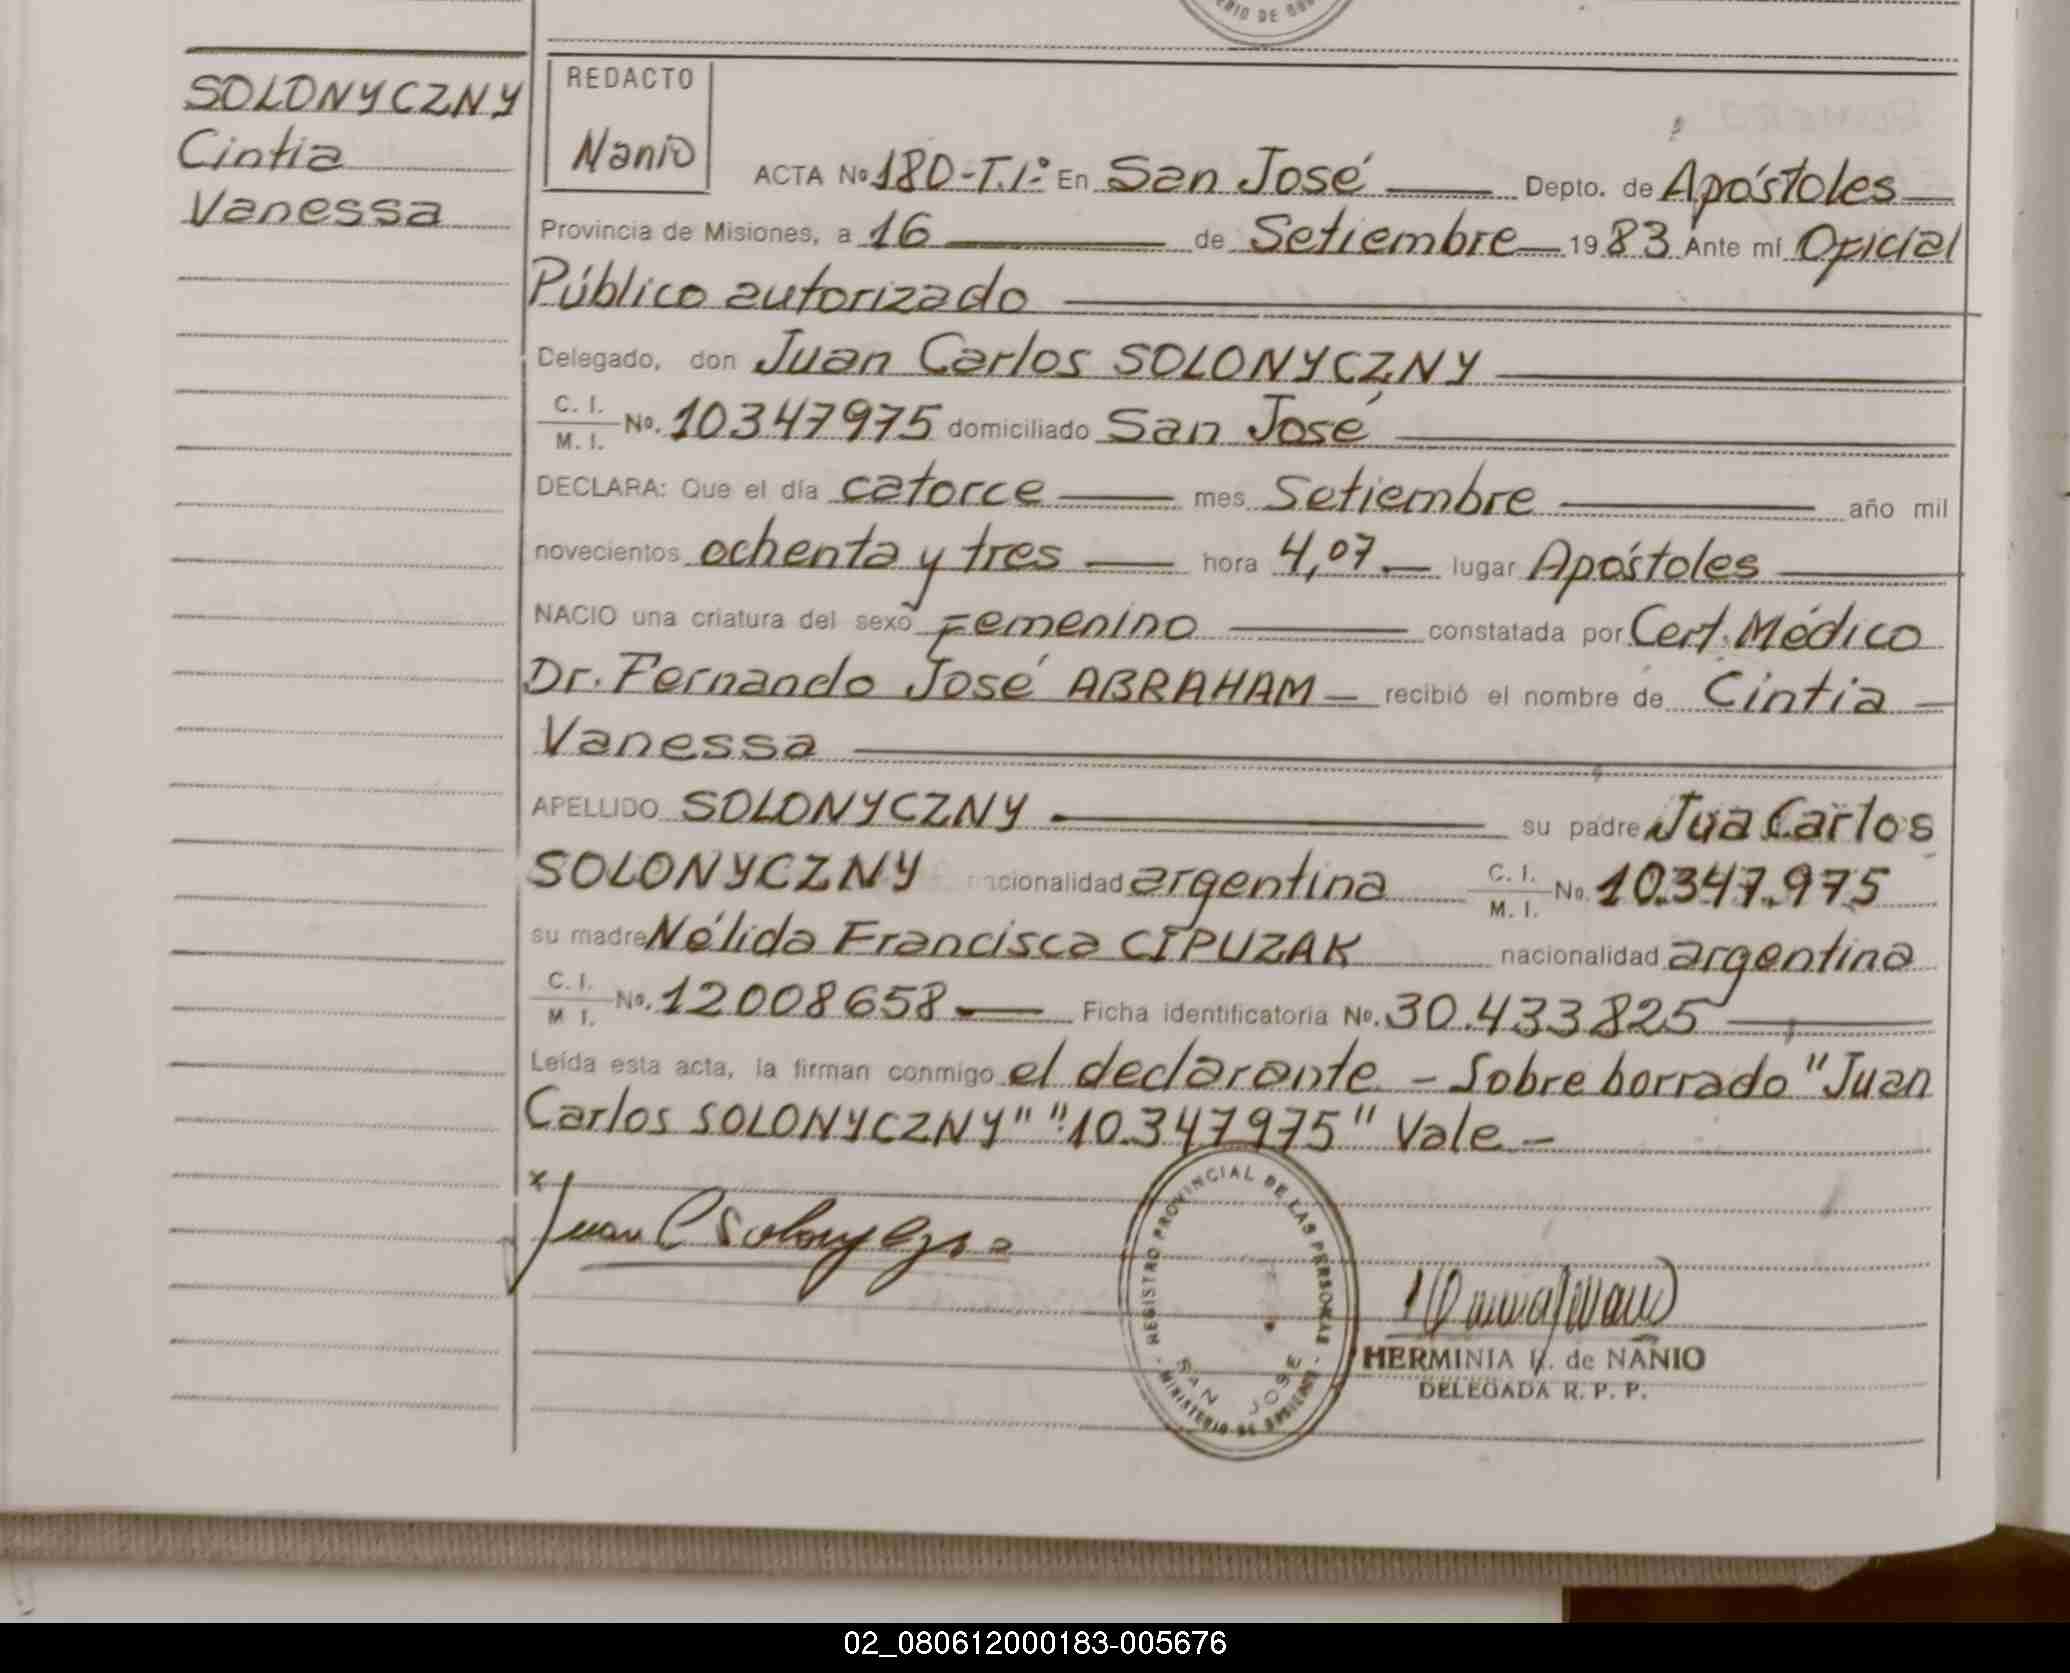 SOLONYCZNY
Cintia
Vanessa
REDACTO
Nanio
ACTA No 180-T.1º En San José Depto. de Apóstoles
Provincia de Misiones, a 16 de Setiembre 1983 Ante mí Oficial
Público autorizado
Delegado, don Juan Carlos SOLONYCZNY
C. I.
M. I. No. 10347975 domiciliado San José
DECLARA: Que el día catorce mes Setiembre año mil
novecientos ochenta y tres hora 4,07 lugar Apóstoles
NACIO una criatura del sexo Femenino constatada por Cert. Médico
Dr. Fernando José ABRAHAM recibió el nombre de Cintia
Vanessa
APELLIDO SOLONYCZNY su padre Jua Carlos
SOLONYCZNY nacionalidad argentina C. I. M. I. No. 10.347.975
su madre Nélida Francisca CIPUZAK nacionalidad argentina
C. I.
M. I. No. 12008658 Ficha identificatoria No. 30.433825
Leída esta acta, la firman conmigo el declarante - Sobre borrado "Juan
Carlos SOLONYCZNY" "10.347975" Vale -
x Juan C Solonyczny
REGISTRO PROVINCIAL DE LAS PERSONAS
SAN JOSE
MINISTERIO DE GOBIERNO
HERMINIA H. de NANIO
DELEGADA R. P. P.
02_080612000183-005676